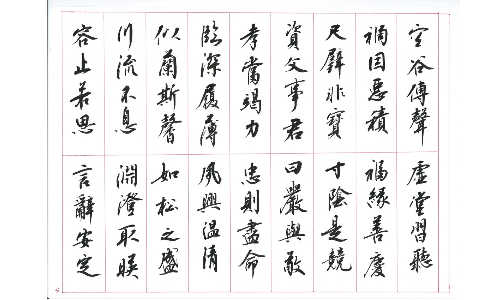 空谷傳聲
虛堂習聽
禍因惡積
福緣善慶
尺璧非寶
寸陰是競
資父事君
曰嚴與敬
孝當竭力
忠則盡命
臨深履薄
夙興溫凊
似蘭斯馨
如松之盛
川流不息
淵澄取映
容止若思
言辭安定